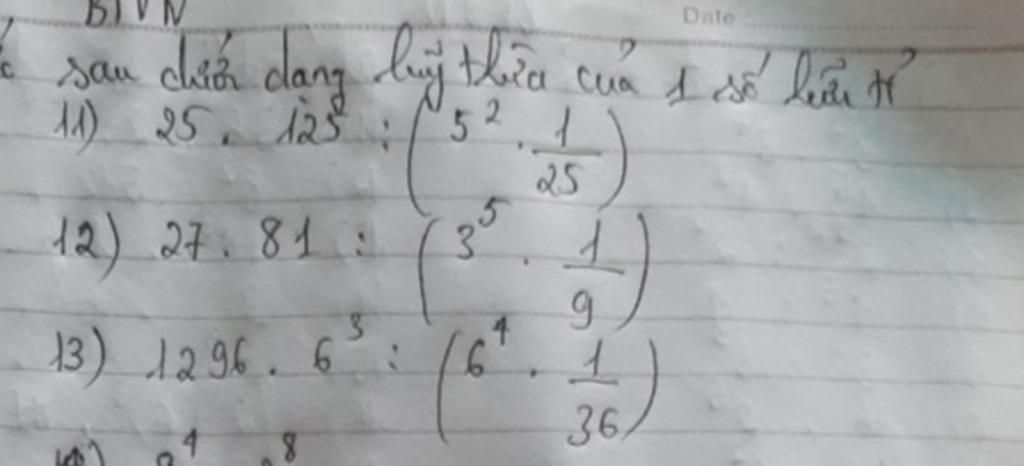 BTVN
Date:
sau dưới dạng luỹ thừa của 1 số hữu tỉ
11) 25 . 125 : (5² . 1/25)
12) 27 . 81 : (3⁵ . 1/9)
13) 1296 . 6³ : (6⁴ . 1/36)